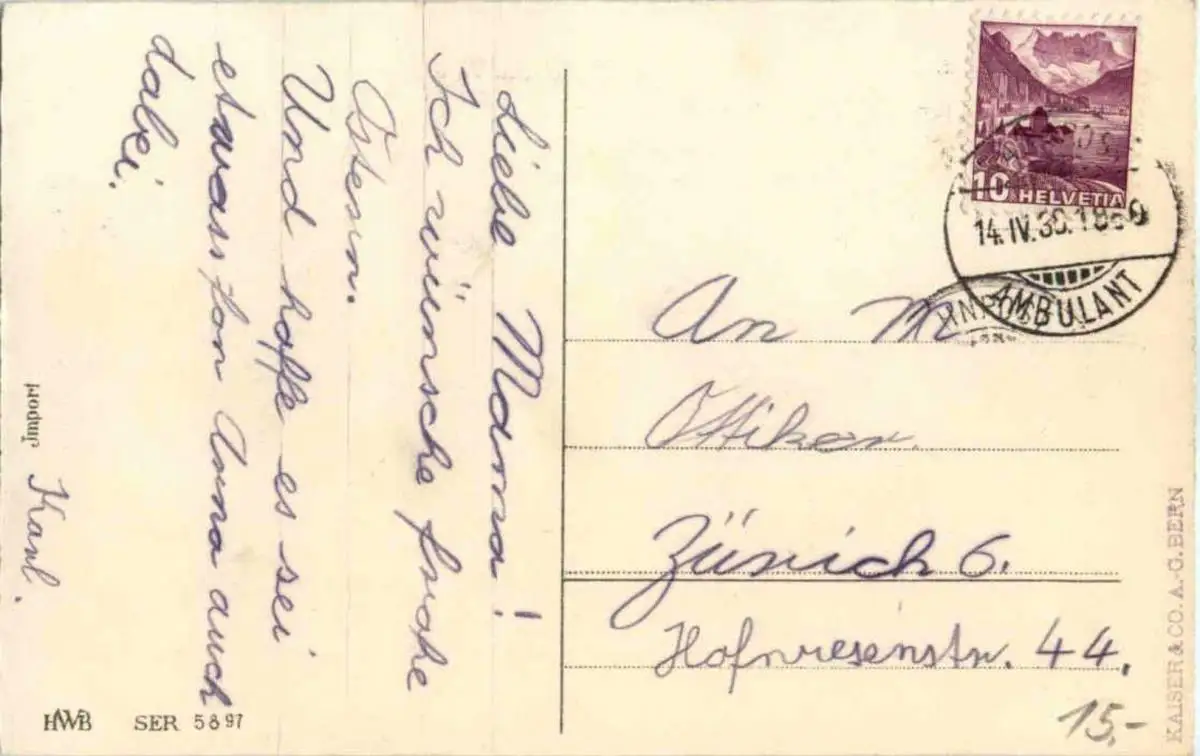 Liebe Mama!
Ich wünsche frohe
Ostern.
Und hoffe es sei
etwass fon Anna auch
dabei.
Karl.
Import
HWB SER 5897
10 HELVETIA
14. IV. 36. 18
AMBULANT
An M
Ottiker.
Zürich 6.
Hofwiesenstr. 44.
15.-
KAISER & CO. A.-G. BERN